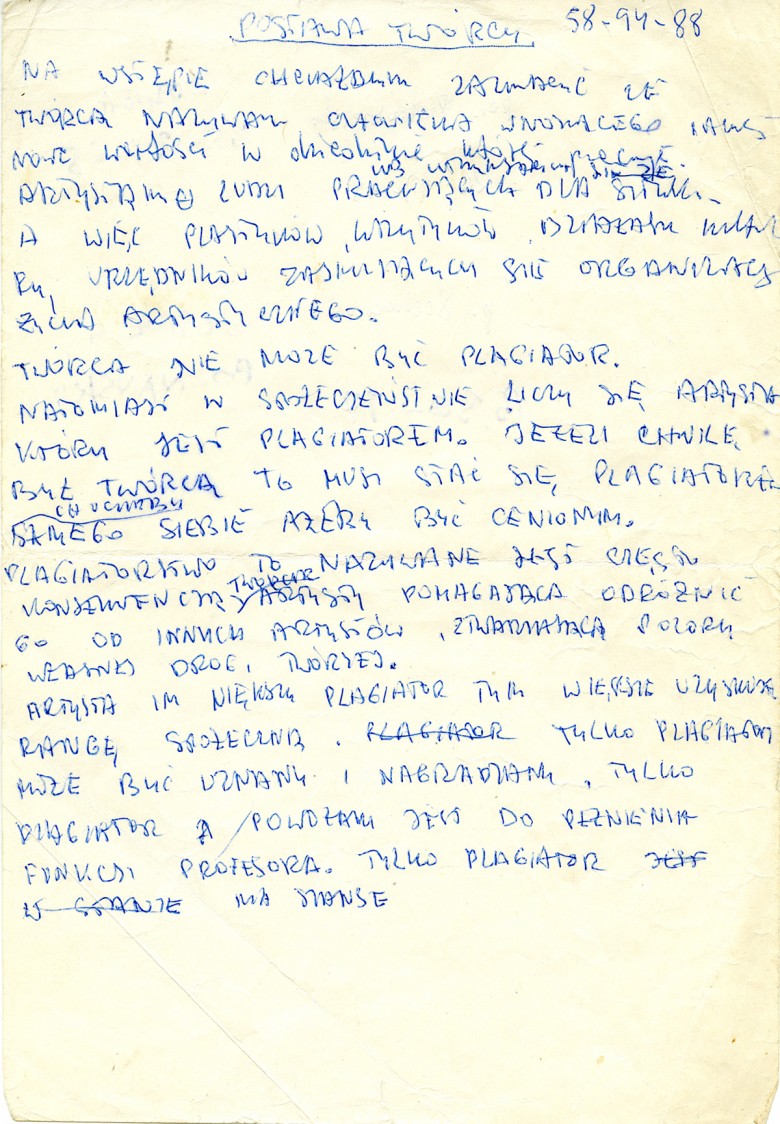 POSTAWA TWÓRCY 58-94-88
NA WSTĘPIE CHCIAŁBYM ZAZNACZYĆ ŻE
TWÓRCĄ NAZYWAM CZŁOWIEKA WNOSZĄCEGO JAKIEŚ
NOWE WARTOŚCI W dziedzinę której
ARTYSTĄ LUDZI PRACUJĄCYCH DLA SZTUKI
A WIĘC PLASTYKÓW, KRYTYKÓW, DZIAŁACZY KULTU
RY, URZĘDNIKÓW ZAJMUJĄCYCH SIĘ ORGANIZACJĄ
ŻYCIA ARTYSTYCZNEGO.
TWÓRCA NIE MOŻE BYĆ PLAGIATOR.
NATOMIAST W SPOŁECZEŃSTWIE LICZY SIĘ ARTYSTA
KTÓRY JEST PLAGIATOREM. JEŻELI CHWILĘ
BYŁ TWÓRCĄ TO MUSI STAĆ SIĘ PLAGIATOREM
CHOCIAŻBY
SAMEGO SIEBIE AŻEBY BYĆ CENIONYM.
PLAGIATORSTWO TO NAZYWANE JEST CZĘSTO
TWÓRCZĄ
KONSEKWENCJĄ ARTYSTY POMAGAJĄCĄ ODRÓŻNIĆ
GO OD INNYCH ARTYSTÓW, STWARZAJĄCĄ POZORY
WŁASNEJ DROGI TWÓRZEJ.
ARTYSTA IM WIĘKSZY PLAGIATOR TYM WIĘKSZE UZYSKUJE
RANGĘ SPOŁECZNĄ. PLAGIATOR TYLKO PLAGIATOR
MOŻE BYĆ UZNANY I NAGRADZANY, TYLKO
PLAGIATOR POWOŁANY JEST DO PEŁNIENIA
FUNKCJI PROFESORA. TYLKO PLAGIATOR JEST
W STANIE MA SZANSE